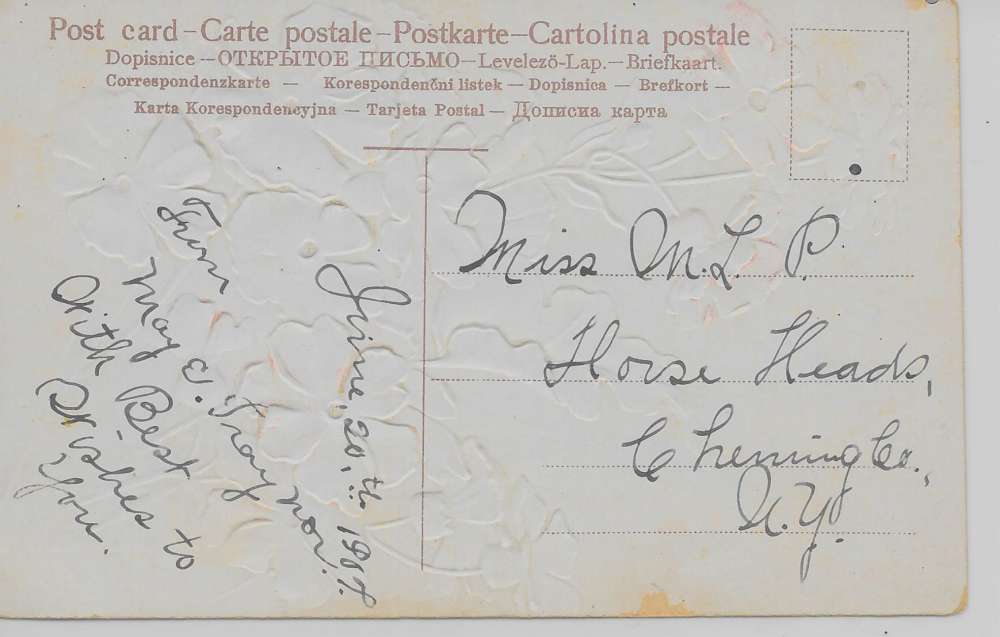 Post card – Carte postale – Postkarte – Cartolina postale
Dopisnice – ОТКРЫТОЕ ПИСЬМО – Levelező-Lap. – Briefkaart.
Correspondenzkarte – Korespondenčni listek – Dopisnica – Brefkort –
Karta Korespondencyjna – Tarjeta Postal – Дописна карта
June, 20.th 1907.
From
May E. Traynor.
With Best
Wishes to
You.
Miss M. L. P.
Horse Heads,
Chemung Co.,
N.Y.